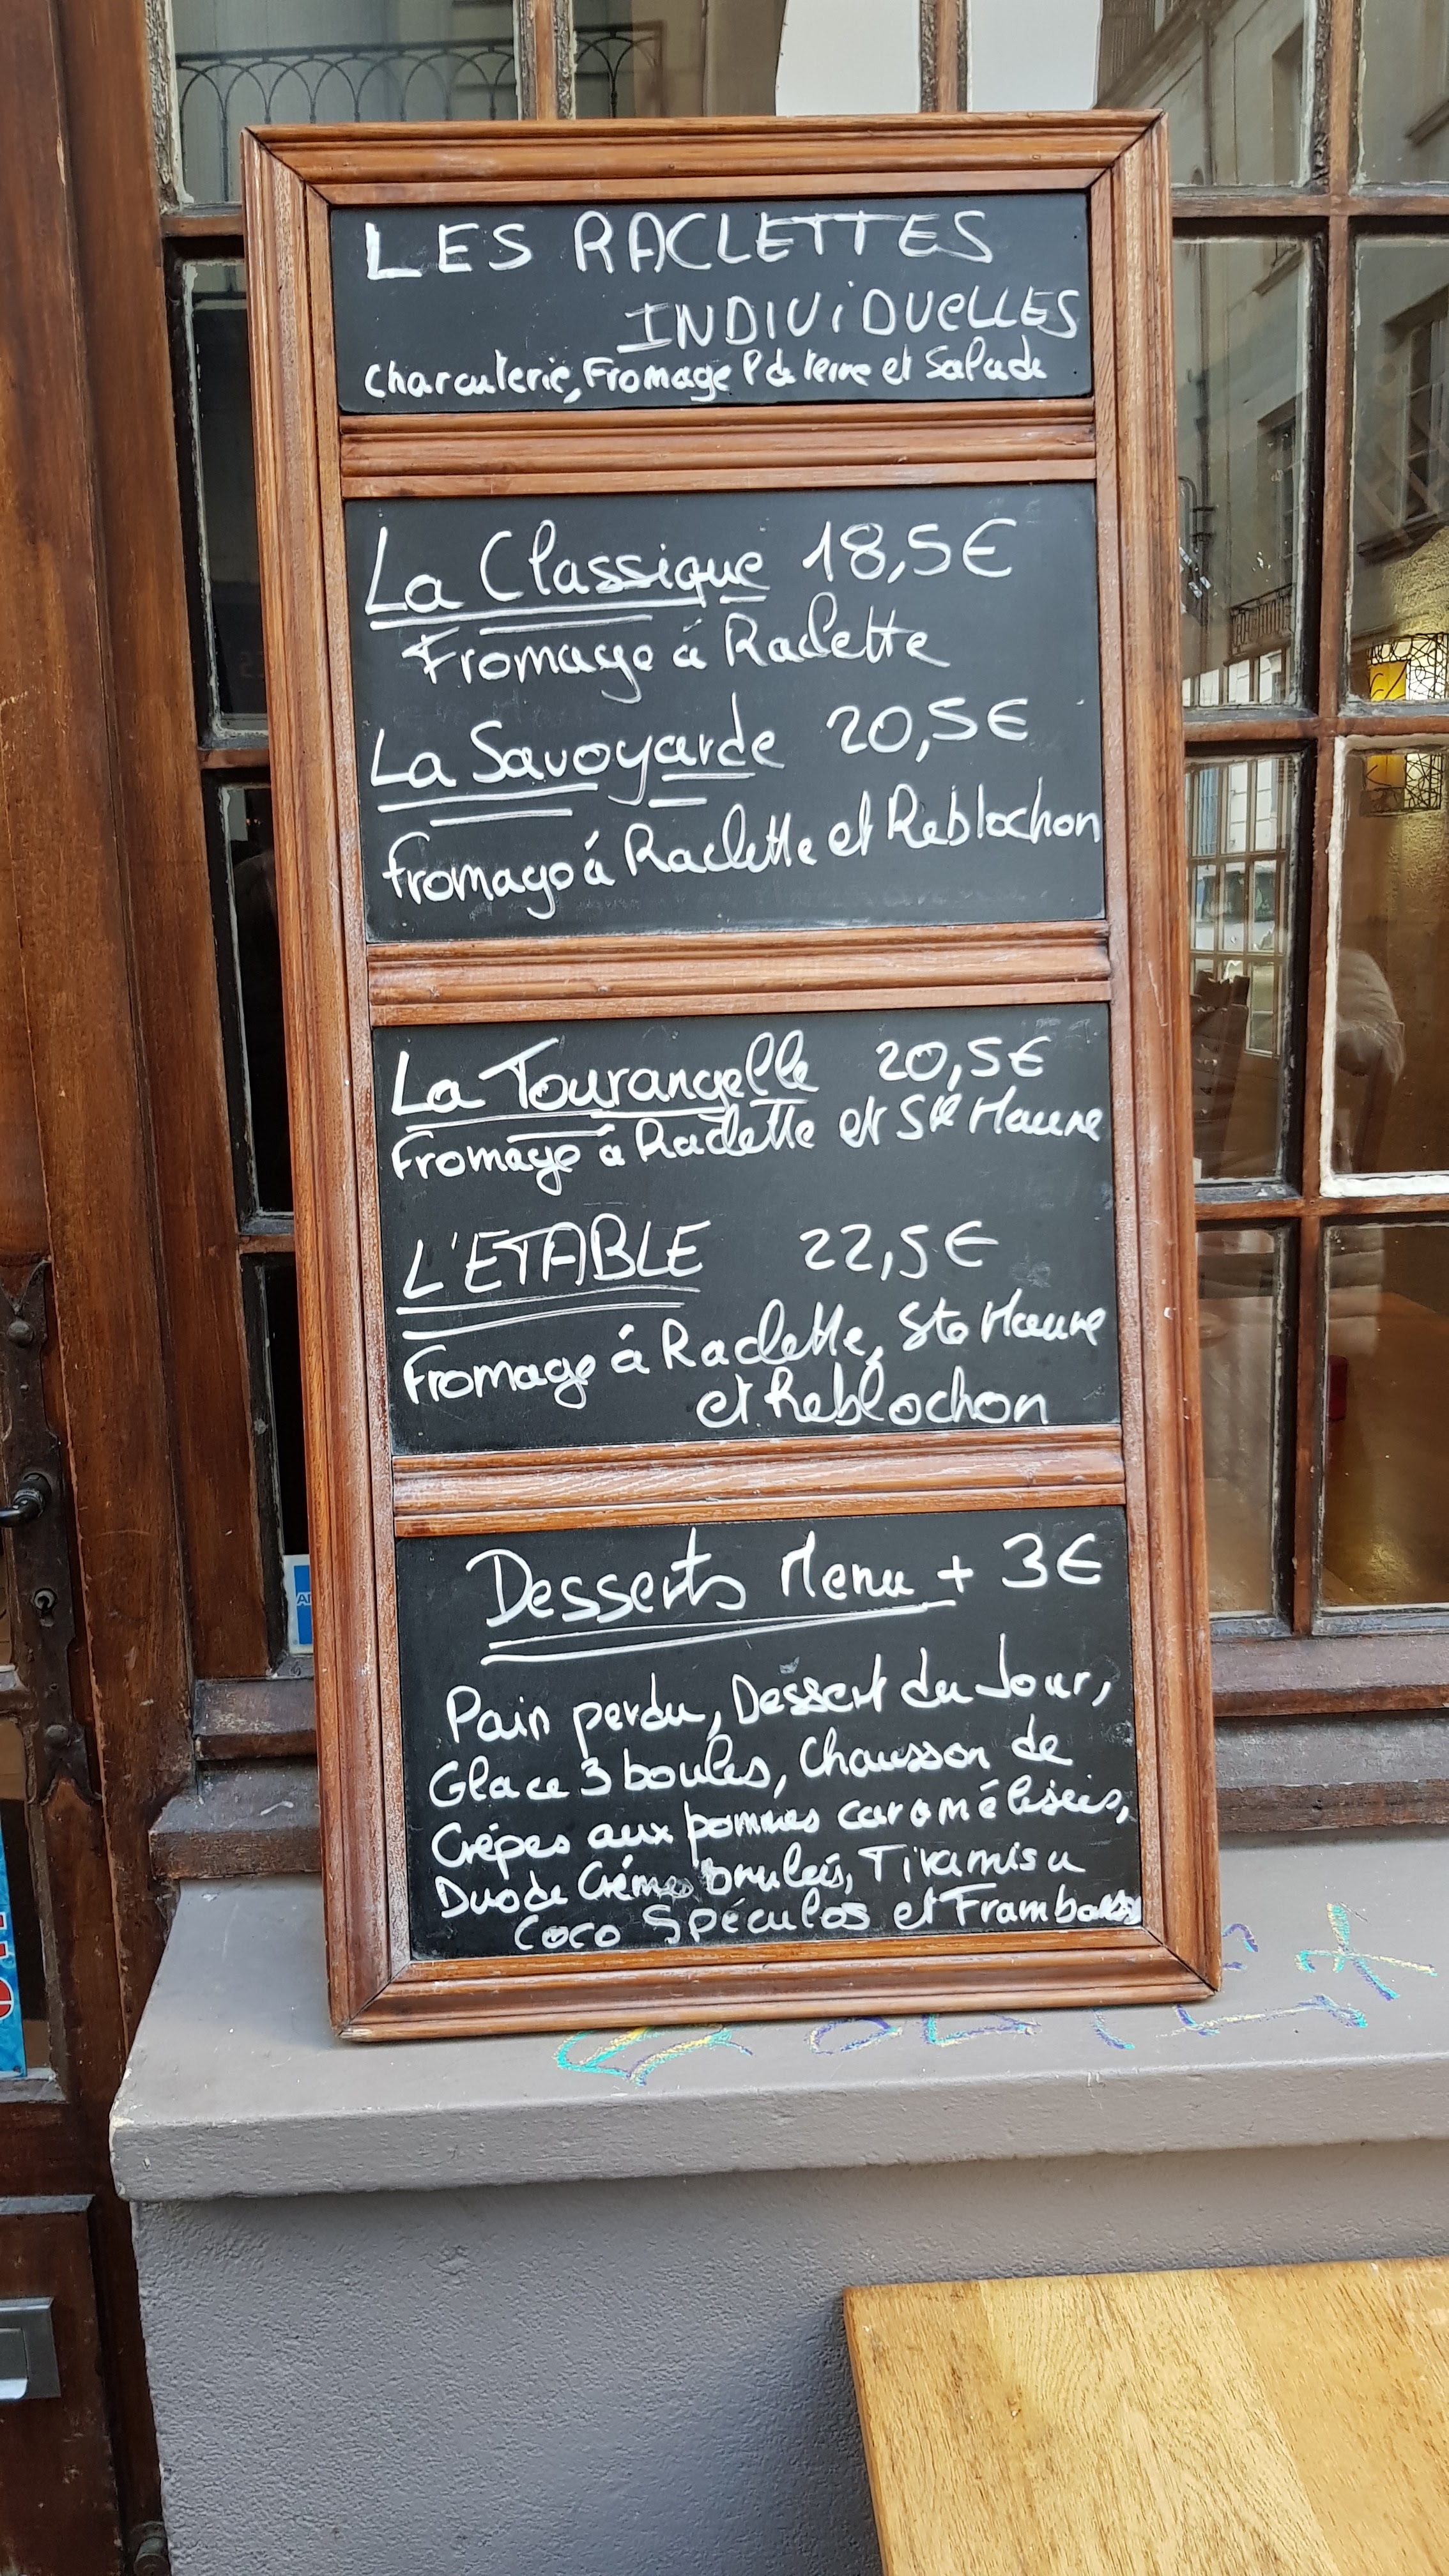 LES RACLETTES
INDIViDUeLLES
Charcuterie, Fromage P de terre et Salade
La Classique 18,5€
Fromage à Raclette
La Savoyarde 20,5€
fromage à Raclette et Reblochon
La Tourangelle 20,5€
Fromage à Raclette et Ste Maure
L'ETABLE 22,5€
Fromage à Raclette, Ste Maure
et Reblochon
Desserts Menu + 3€
Pain perdu, Dessert du Jour,
Glace 3 boules, Chausson de
Crêpes aux pommes caramélisées,
Duo de Crème brulées, Tiramisu
Coco Spéculos et Framboises